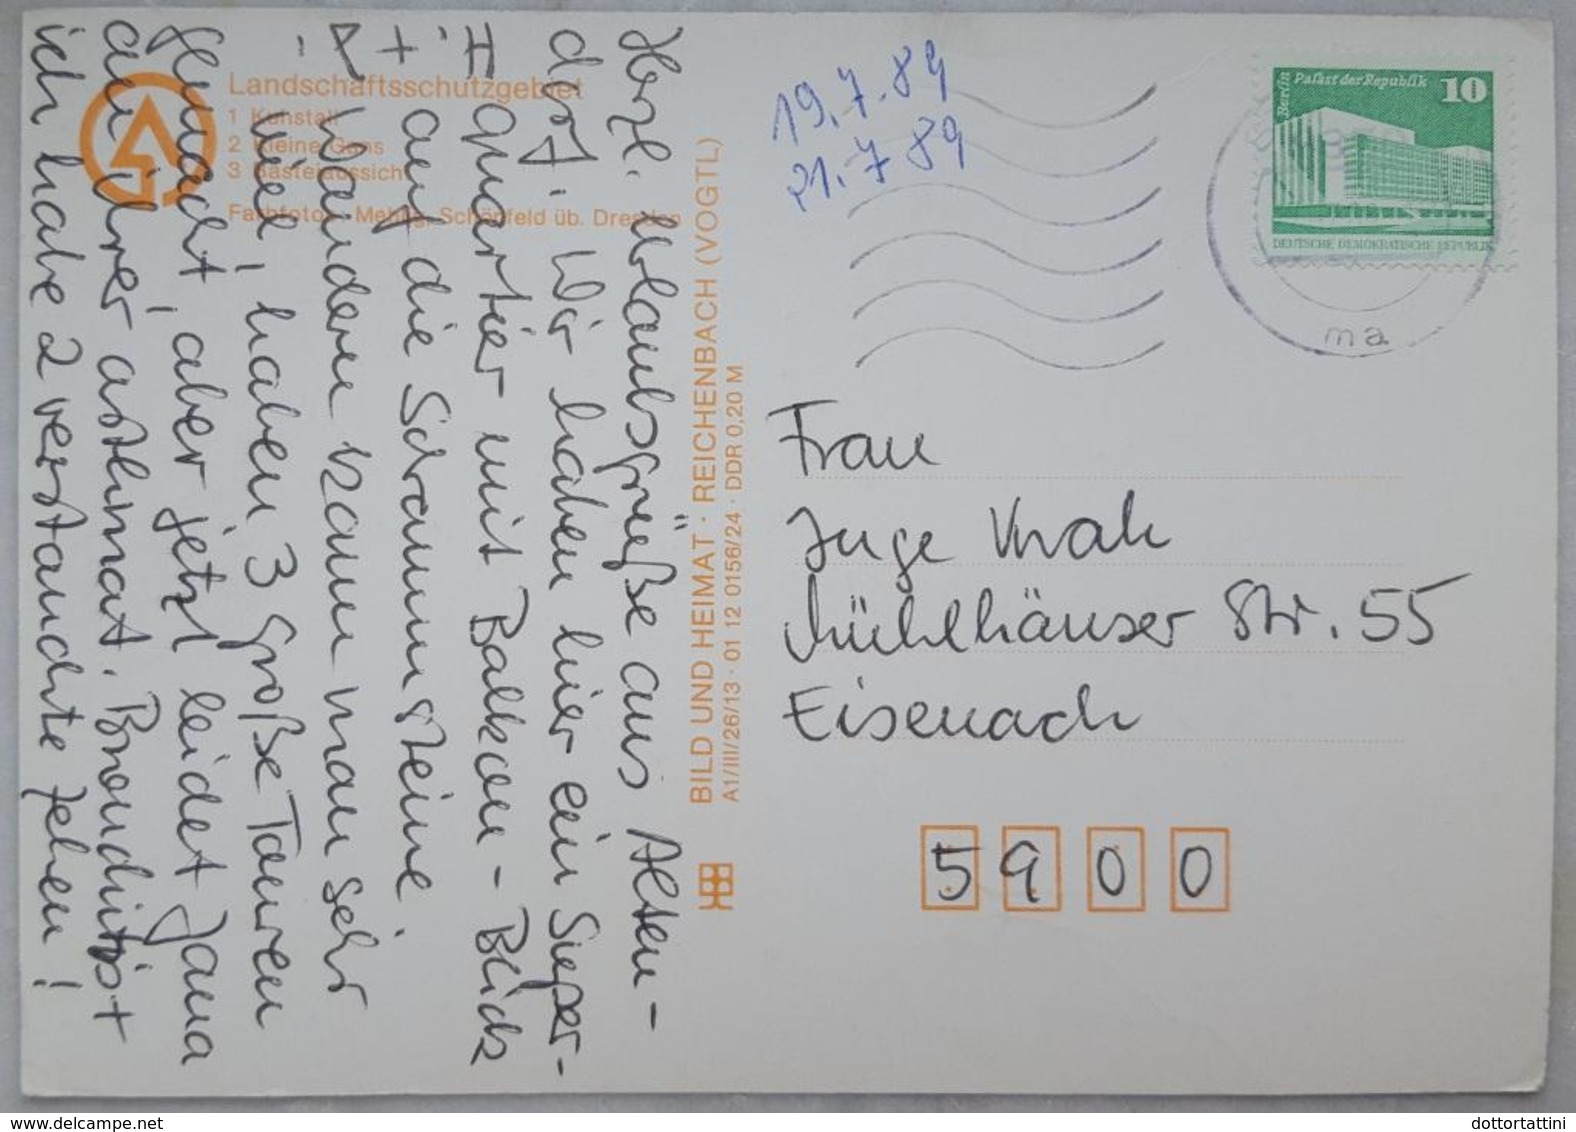 Landschaftsschutzgebiet
1 Kuhstall
2 Kleine Gans
3 Basteiaussicht
Farbfotos: Mehlig, Schönfeld üb. Dresden
BILD UND HEIMAT · REICHENBACH (VOGTL)
A1/III/26/13 · 01 12 0156/24 · DDR 0,20 M
Herzl. Urlaubsgrüße aus Alten-
dorf. Wir haben hier ein Super-
Quartier mit Balkon - Blick
auf die Schrammsteine.
+ Wandern kann man sehr
viel, haben 3 große Touren
gemacht, aber jetzt leidet Jana
an ihrer asthmat. Bronchitis +
ich habe 2 verstauchte Zehen!
19.7.89
21.7 89
Berlin
Palast der Republik
10
DEUTSCHE DEMOKRATISCHE REPUBLIK
ma
Frau
Inge Knak
Mühlhäuser Str. 55
Eisenach
5900
dottortattini